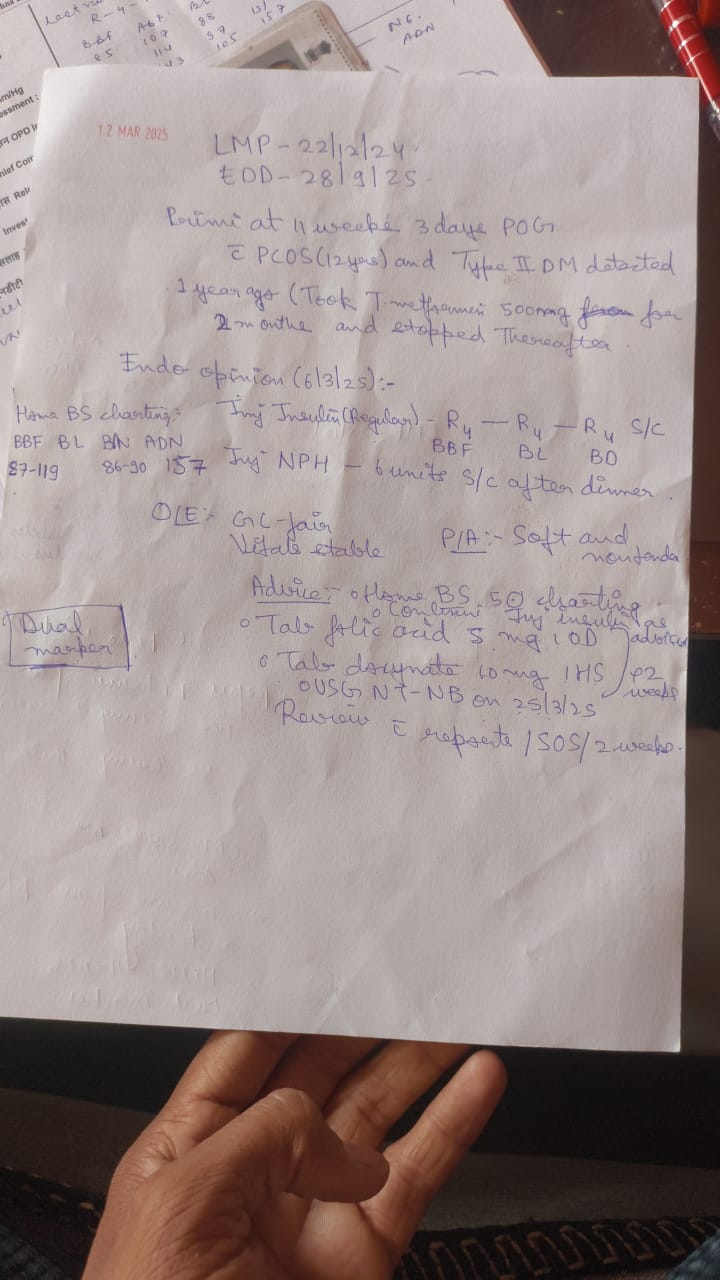 Lectu
R-4-
BBF ABF BL
85 107 88 13/ 157
114 97
43 105
N6.
ADN
m/Hg
ssment:
OPD
hief Com
Rele
Inves
12 MAR 2025
LMP - 22/12/24.
EDD - 28/9/25.
Primi at 11 weeks 3 days POG
c̄ PCOS (12 years) and Type II DM detected
1 year ago (Took T. metformin 500mg for
2 months and stopped Thereafter.
Endo opinion (6/3/25):-
Home BS charting:- Inj Insulin (Regular) - R4 — R4 — R4 S/C
BBF BL BD
BBF BL BN ADN
87-119 86-90 157 Inj NPH — 6 units S/c after dinner.
O/E:- GC-fair P/A:- Soft and
Vitals stable nontender
Advice:- o Home BS charting
o Continue Inj insulin as advised
Dual
marker
o Tab folic acid 5 mg 1 OD
o Tab doxynate 10mg 1HS x2 weeks
o USG NT-NB on 25/3/25
Review c̄ reports / SOS / 2 weeks.